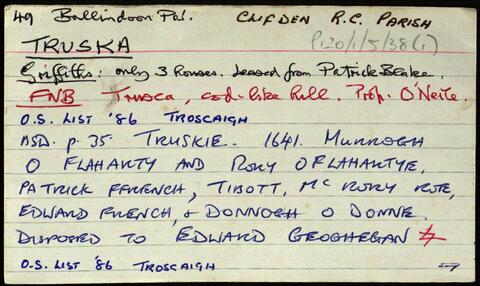 49 Ballindoon Par. CLIFDEN R.C. PARISH
P120/1/5/38(i)
TRUSKA
Griffiths: only 3 houses. Leased from Patrick Blake.
FNB Trusca, cod-like hill. Prop. O'Neile.
O.S. LIST '86 TROSCAIGH
BSD. p. 35 TRUSKIE. 1641. MURROGH
O FLAHARTY AND RORY OFLAHARTYE,
PATRICK FFRENCH, TIBOTT, Mc RORY ROE,
EDWARD FRENCH, & DONNOGH O DONNE.
DISPOSED TO EDWARD GEOGHEGAN
O.S. LIST '86 TROSCAIGH